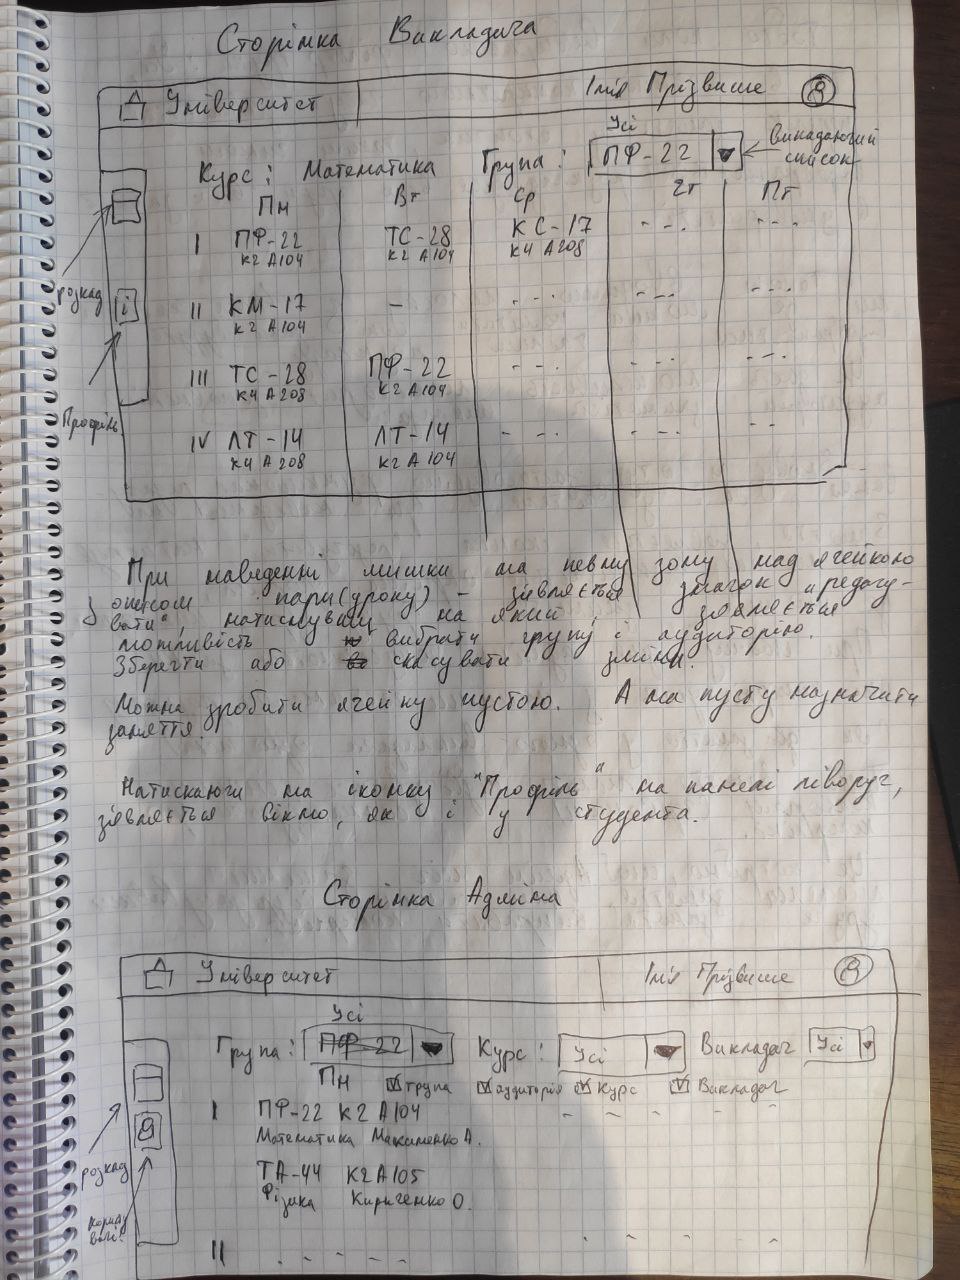 Сторінка Викладача
Університет Імія Прізвише
Усі
Курс: Математика Група: ПФ-22 викадаючий
список
Пн Вт Ср Чт Пт
I ПФ-22 ТС-28 КС-17 - - - - - -
к2 А104 к2 А104 к4 А208
розкад
i
II КМ-17 - - - - - - - - - -
к2 А104
III ТС-28 ПФ-22 - - - - - - - - -
к4 А208 к2 А104
Профіль
IV ЛТ-14 ЛТ-14 - - - - - - - -
к4 А208 к2 А104
При наведенні мишки на певну зону над ячейкою
з описом пари(уроку) - зʼявляється значок "редагу-
вати", натиснувши на який, зʼявляється
можливість вибрати групу і аудиторію.
Зберегти або скасувати зміни.
Можна зробити ячейку пустою. А на пусту назначити
заняття.
Натискаючи на іконку "Профіль" на панелі ліворуч,
зʼявляється вікно, як і у студента.
Сторінка Адміна
Університет Імія Прізвише
Усі
Група: ПФ-22 Курс: Усі Викладач Усі
Пн група аудиторія Курс Викладач
I ПФ-22 К2 А104 - - - - - -
Математика Максименко А.
розкад
ТА-44 К2А105
Фізика Кириченко О.
II - - - - - - - -